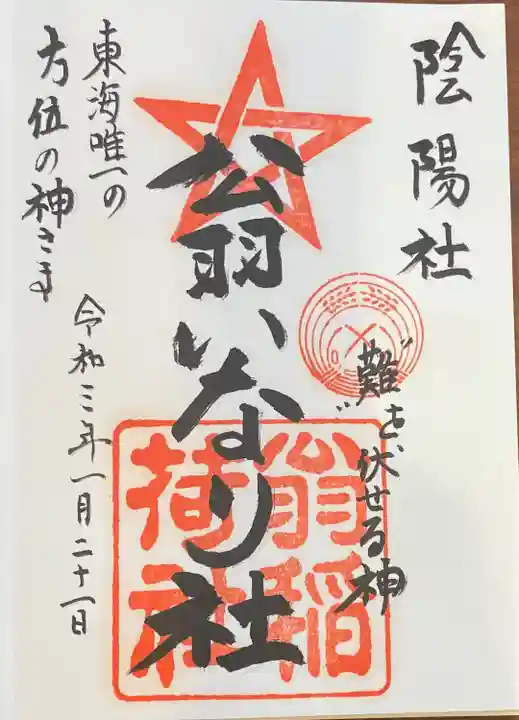 陰陽社
"難"を伏せる神
翁いなり社
翁稲
荷社
東海唯一の
方位の神さま
令和三年一月二十一日